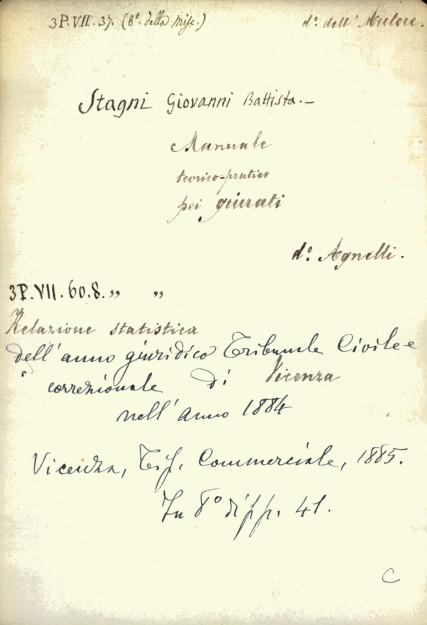 3P.VII.37. (8º. della Misc.) dº. dell' Autore.
Stagni Giovanni Battista.—
Manuale
teorico-pratico
pei giurati
dº. Agnelli.
3P.VII.60.8. „ „
Relazione statistica
dell'anno giuridico Tribunale Civile e
correzionale di Vicenza
nell'anno 1884
Vicenza, Tip. Commerciale, 1885.
In 8º di pp. 41.
C